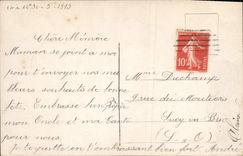 Chère Mémère
Maman se joint a moi
pour t'envoyer nos meil
leurs souhaits de bonne
fête. Embrasse bien Pépère
mon Oncle et ma Tante
pour nous.
Je te quitte en t'embrassant bien fort André
10
Mme Duchamp
rue des Moutiers
Sucy en Brie
(S et O)